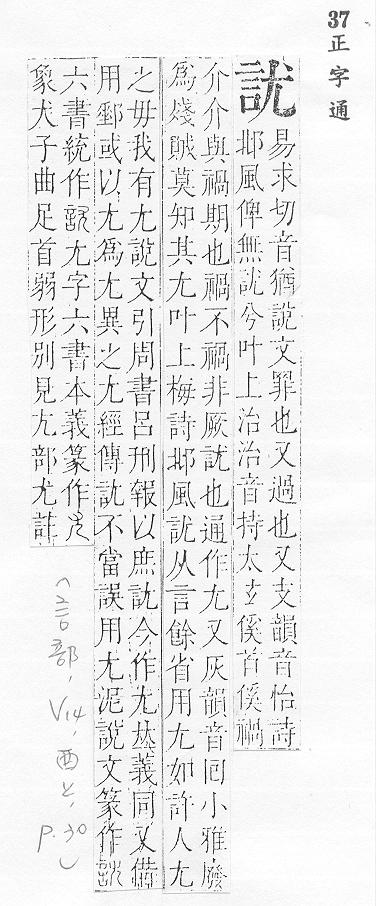 37 正字通
訧
易求切音猶說文罪也又過也又支韻音怡詩
邶風俾無訧兮叶上治治音持太玄傒首傒禍
介介與禍期也禍不禍非厥訧也通作尤又灰韻音回小雅廢
為殘賊莫知其尤叶上梅詩邶風訧从言餘省用尤如許人尤
之毋我有尤說文引周書呂刑報以庶訧今作尤𠀤義同又備
用郵或以尤為尤異之尤經傳訧不當誤用尤泥說文篆作
六書統作 尤字六書本義篆作
象犬子曲足首弱形別見尢部尤註
(言部, V14, 酉上, P.30)